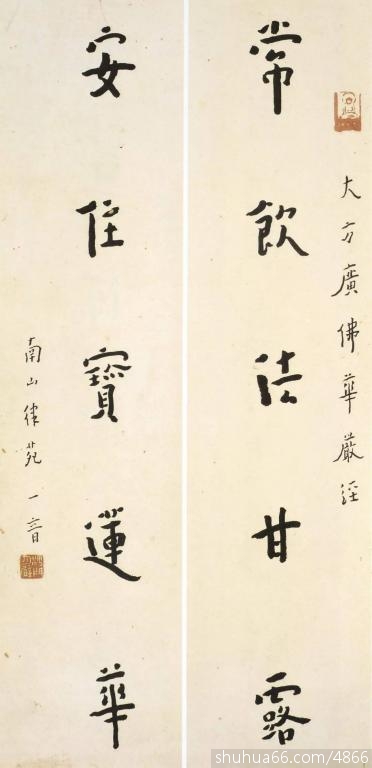 大方廣佛華嚴經
常飲法甘露
安住寶蓮華
南山律苑一音
shuhua66.com/4866